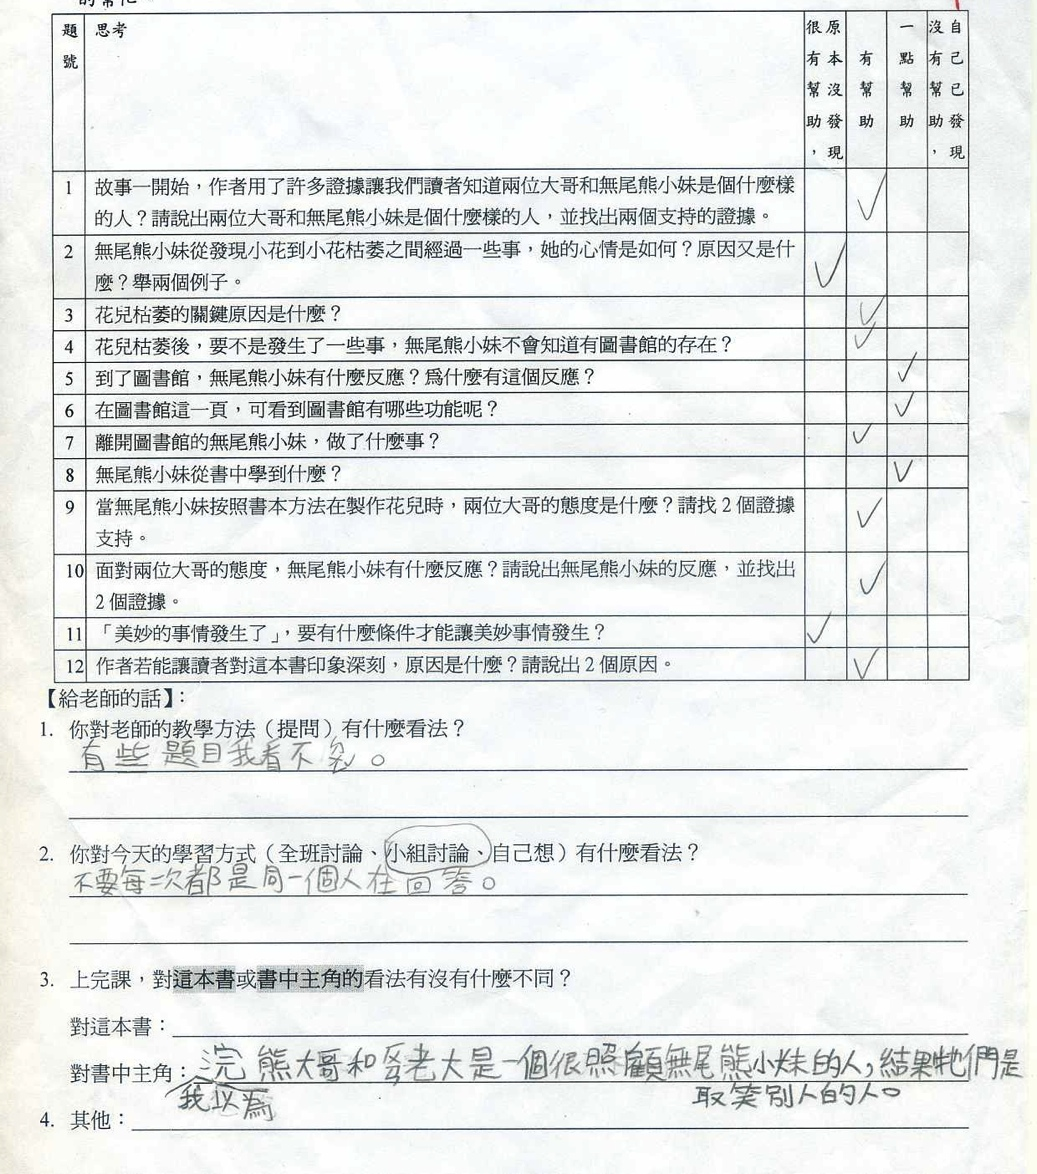 題號 思考 原本沒發現，很有幫助 有幫助 一點幫助 自己已發現，沒有幫助
1 故事一開始，作者用了許多證據讓我們讀者知道兩位大哥和無尾熊小妹是個什麼樣
的人？請說出兩位大哥和無尾熊小妹是個什麼樣的人，並找出兩個支持的證據。
2 無尾熊小妹從發現小花到小花枯萎之間經過一些事，她的心情是如何？原因又是什
麼？舉兩個例子。
3 花兒枯萎的關鍵原因是什麼？
4 花兒枯萎後，要不是發生了一些事，無尾熊小妹不會知道有圖書館的存在？
5 到了圖書館，無尾熊小妹有什麼反應？爲什麼有這個反應？
6 在圖書館這一頁，可看到圖書館有哪些功能呢？
7 離開圖書館的無尾熊小妹，做了什麼事？
8 無尾熊小妹從書中學到什麼？
9 當無尾熊小妹按照書本方法在製作花兒時，兩位大哥的態度是什麼？請找 2 個證據
支持。
10 面對兩位大哥的態度，無尾熊小妹有什麼反應？請說出無尾熊小妹的反應，並找出
2 個證據。
11 「美妙的事情發生了」，要有什麼條件才能讓美妙事情發生？
12 作者若能讓讀者對這本書印象深刻，原因是什麼？請說出 2 個原因。
【給老師的話】：
1. 你對老師的教學方法（提問）有什麼看法？
有些題目我看不。
2. 你對今天的學習方式（全班討論、小組討論、自己想）有什麼看法？
不要每次都是同一個人在回答。
3. 上完課，對這本書或書中主角的看法有沒有什麼不同？
對這本書：
對書中主角：浣熊大哥和老大是一個很照顧無尾熊小妹的人，結果牠們是
我以為 取笑別人的人。
4. 其他：